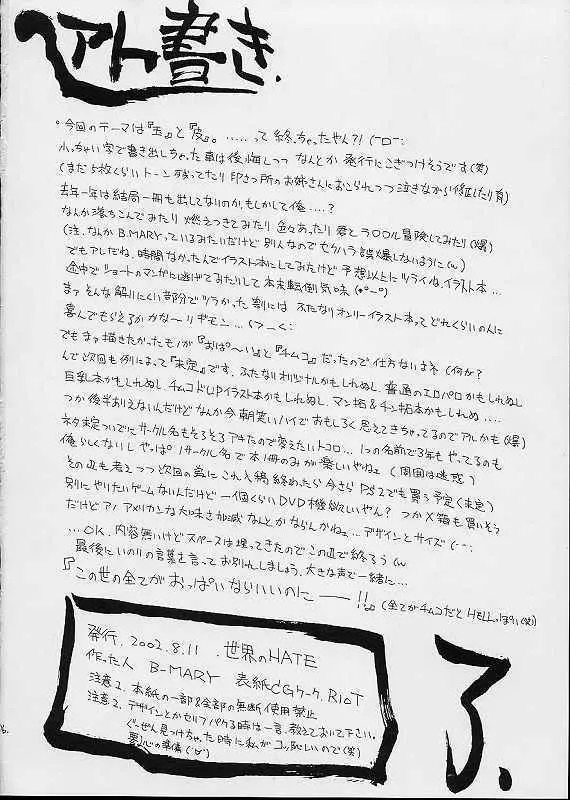 アト書き.
°今回のテーマは『玉』と『皮』。……って終っちゃったやん?! (ーロー;
小っちゃい字で書き出しちゃった事は後悔しつつ なんとか 発行にこぎつけそうです(笑)
(まだ5枚くらいトーン残ってたり 印さつ所のお姉さんにおこられつつ泣きながら修正したり)
去年一年は結局一冊も出してないのか、もしかして俺……?
なんか落ちこんでみたり 燃えつきてみたり 色々あったり 愛とラ○○ル冒険してみたり(爆)
(注、なんか B.MARYっているみたいだけど 別人なのでセクハラ誤爆しないように(w)
でもアレだね、時間なかったんでイラスト本にしてみたけど 予想以上にツライね、イラスト本…
途中でショートのマンガに逃げてみたりして本末転倒気味(*°ー°)
まァそんな解りにくい部分でツラかった割には ふたなりオンリーイラスト本って どれくらいの人に
喜んでもらえるか かなーりギモン…
でもまァ描きたかったモノが『おぱ〜い』と『チムコ』だったので仕方ないよネ(何が?
んで次回も例によって『未定』です、ふたなりオリジナルかもしれぬし、普通のエロパロかもしれぬし
巨乳本かもしれぬし チムコドUPイラスト本かもしれぬし、マン拓&チン拓本かもしれぬ….
つか後半ありえないんだけど なんか今朝笑いハイで おもしろく思えてきちゃってるのでアルかも(爆)
ネタ未定ついでにサークル名もそろそろアキたので変えたいトコロ… 1つの名前で3年もやってるのも
俺らしくないし やっぱ1サークル名で本1冊のみが楽しいやねェ (周囲は迷惑)
その辺も考えつつ次回の為に これ入稿終わったら 今さら PS2でも買う予定(未定)
別にやりたいゲームないんだけど 一個くらいDVD機欲しいやん? つかX箱も買いそう
だけどアノ アメリカンな大味さ加減なんとかならんかねェ…デザインとサイズ(ー;
…OK、内容無いけど スペースは埋ってきたのでこの辺で終ろう(w
最後にいのりの言葉を言って お別れしましょう、大きな声で一緒に…
『この世の全てがおっぱいならいいのにーー!!』 (全てがチムコだとHELLっぽい(笑)
発行. 2002.8.11 .世界のHATE
作った人 B-MARY 表紙CGワーク. RioT
注意1、本紙の一部&全部の無断使用禁止
注意2、デザインとかセルフパクる時は一言、教えておいて下さい。
ぐーぜん見つけちゃった時に私がコッ恥しいので(笑)
了.